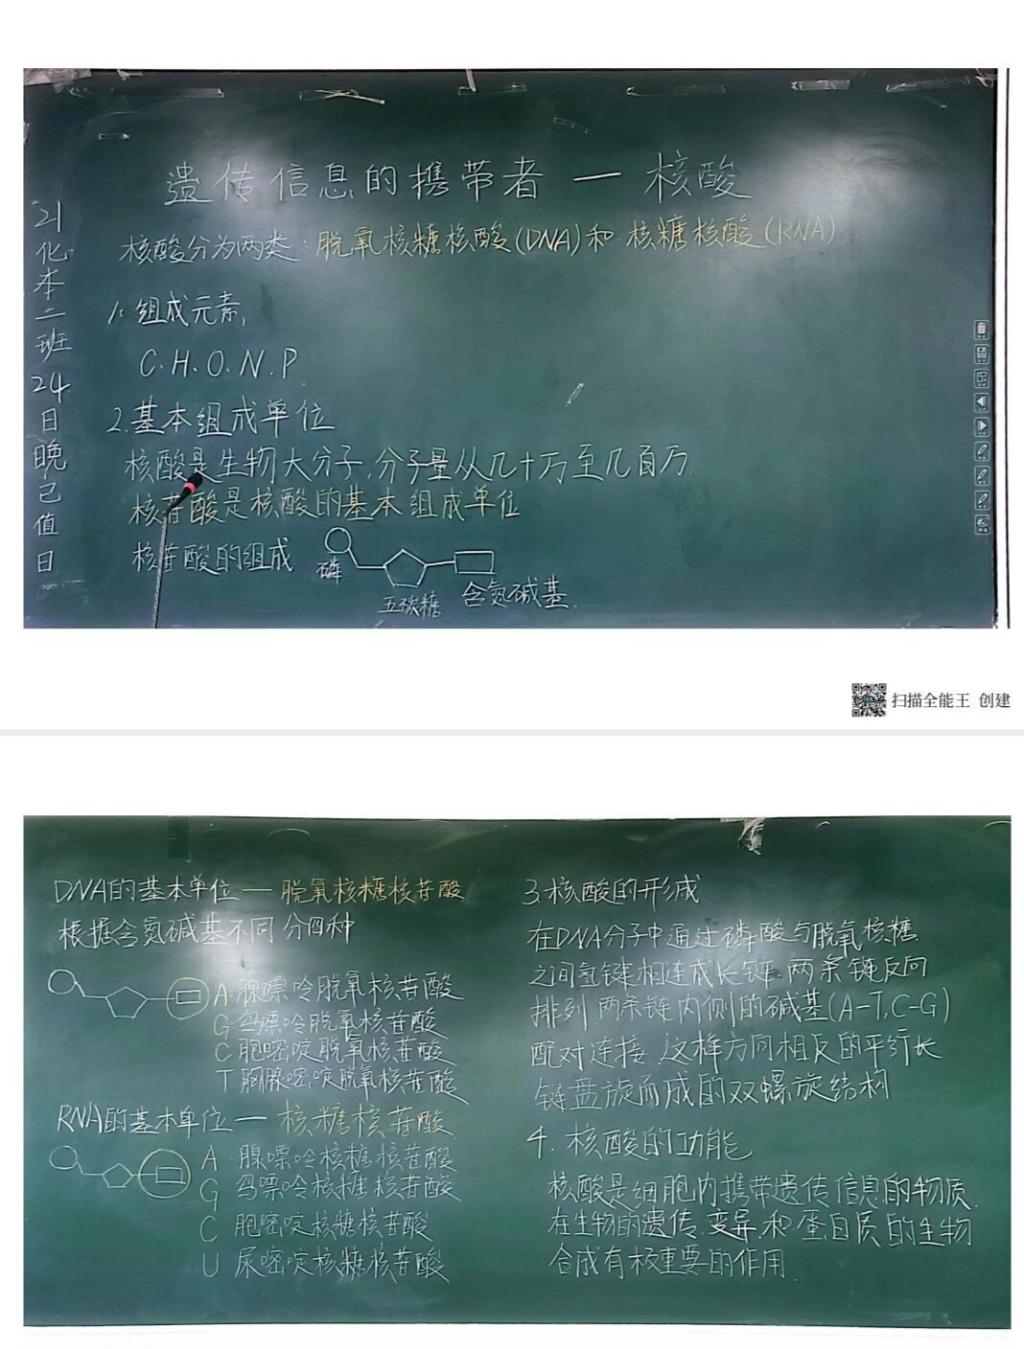 遗传信息的携带者 — 核酸
核酸分为两类:脱氧核糖核酸(DNA)和核糖核酸(RNA)
21化本二班24日晚己值日
1. 组成元素,
C.H.O.N.P.
2.基本组成单位
核酸是生物大分子,分子量从几十万至几百万.
核苷酸是核酸的基本组成单位
核苷酸的组成
磷
五碳糖
含氮碱基.
扫描全能王 创建
DNA的基本单位 — 脱氧核糖核苷酸
根据含氮碱基不同分四种
A.腺嘌呤脱氧核苷酸
G 鸟嘌呤脱氧核苷酸
C 胞嘧啶脱氧核苷酸
T 胸腺嘧啶脱氧核苷酸
RNA的基本单位 — 核糖核苷酸
A 腺嘌呤核糖核苷酸
G 鸟嘌呤核糖核苷酸
C 胞嘧啶核糖核苷酸
U 尿嘧啶核糖核苷酸
3.核酸的形成
在DNA分子中通过磷酸与脱氧核糖
之间氢键相连成长链.两条链反向
排列.两条链内侧的碱基(A-T,C-G)
配对连接.这样方向相反的平行长
链盘旋而成的双螺旋结构
4. 核酸的功能
核酸是细胞内携带遗传信息的物质.
在生物的遗传.变异.和蛋白质的生物
合成有极重要的作用.